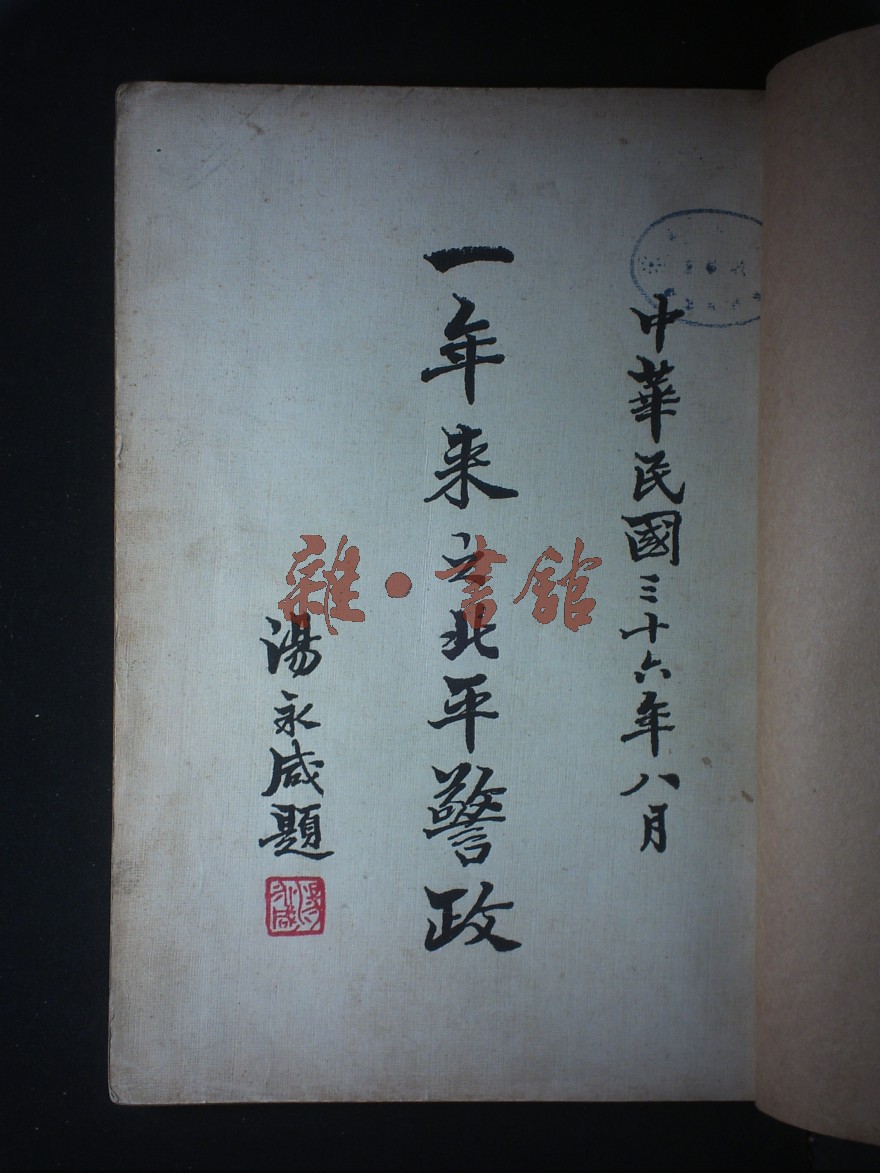 中華民國三十六年八月
一年来之北平警政
湯永咸題
雜·書館